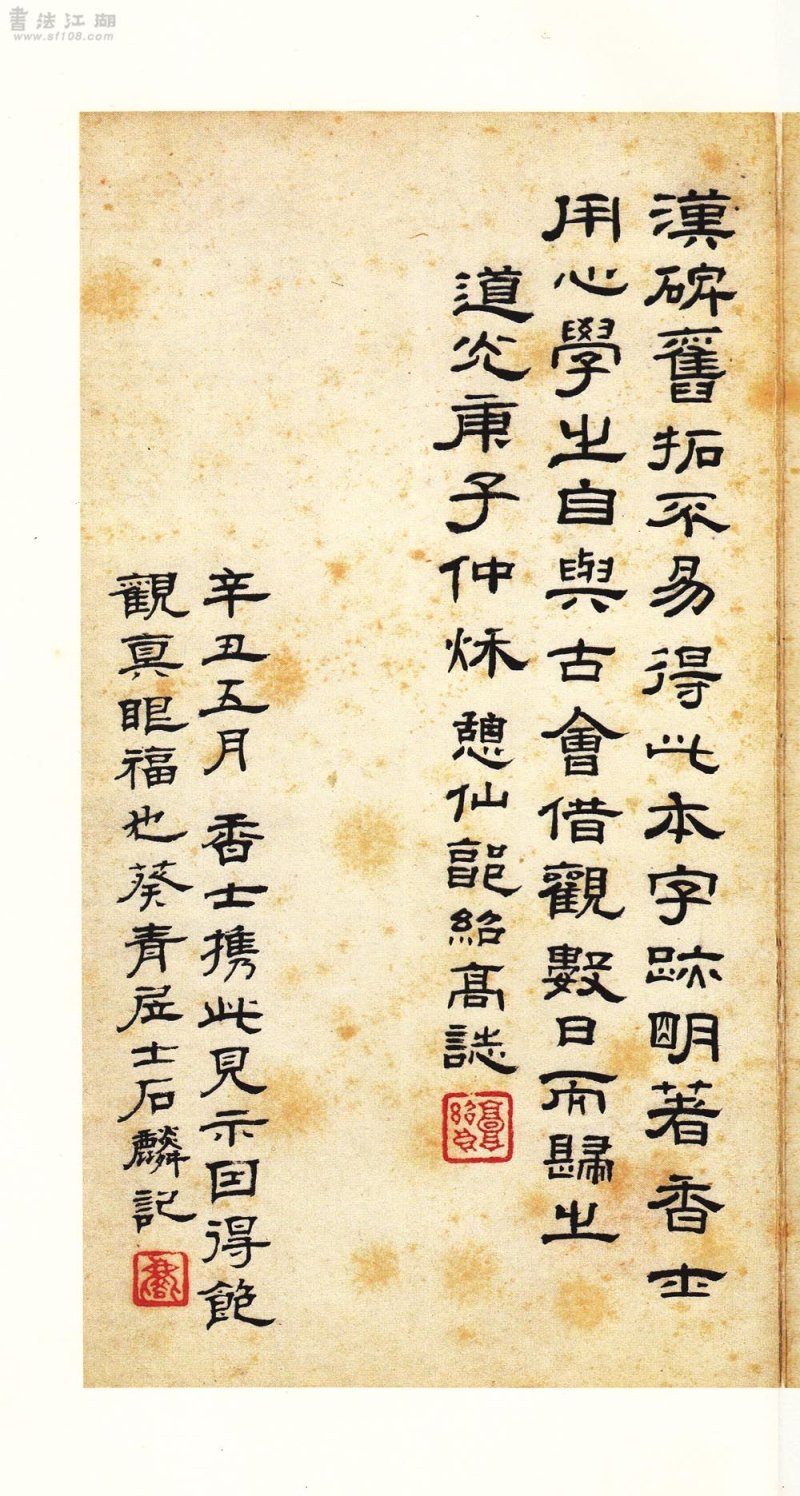 書法江湖
www.sf108.com
漢碑舊拓不易得此本字跡明著香士
用心學之自與古會借觀數日而歸之
道光庚子仲秌憩仙郭紹高誌
辛丑五月香士携此見示因得飽
觀真眼福也葵青居士石麟記